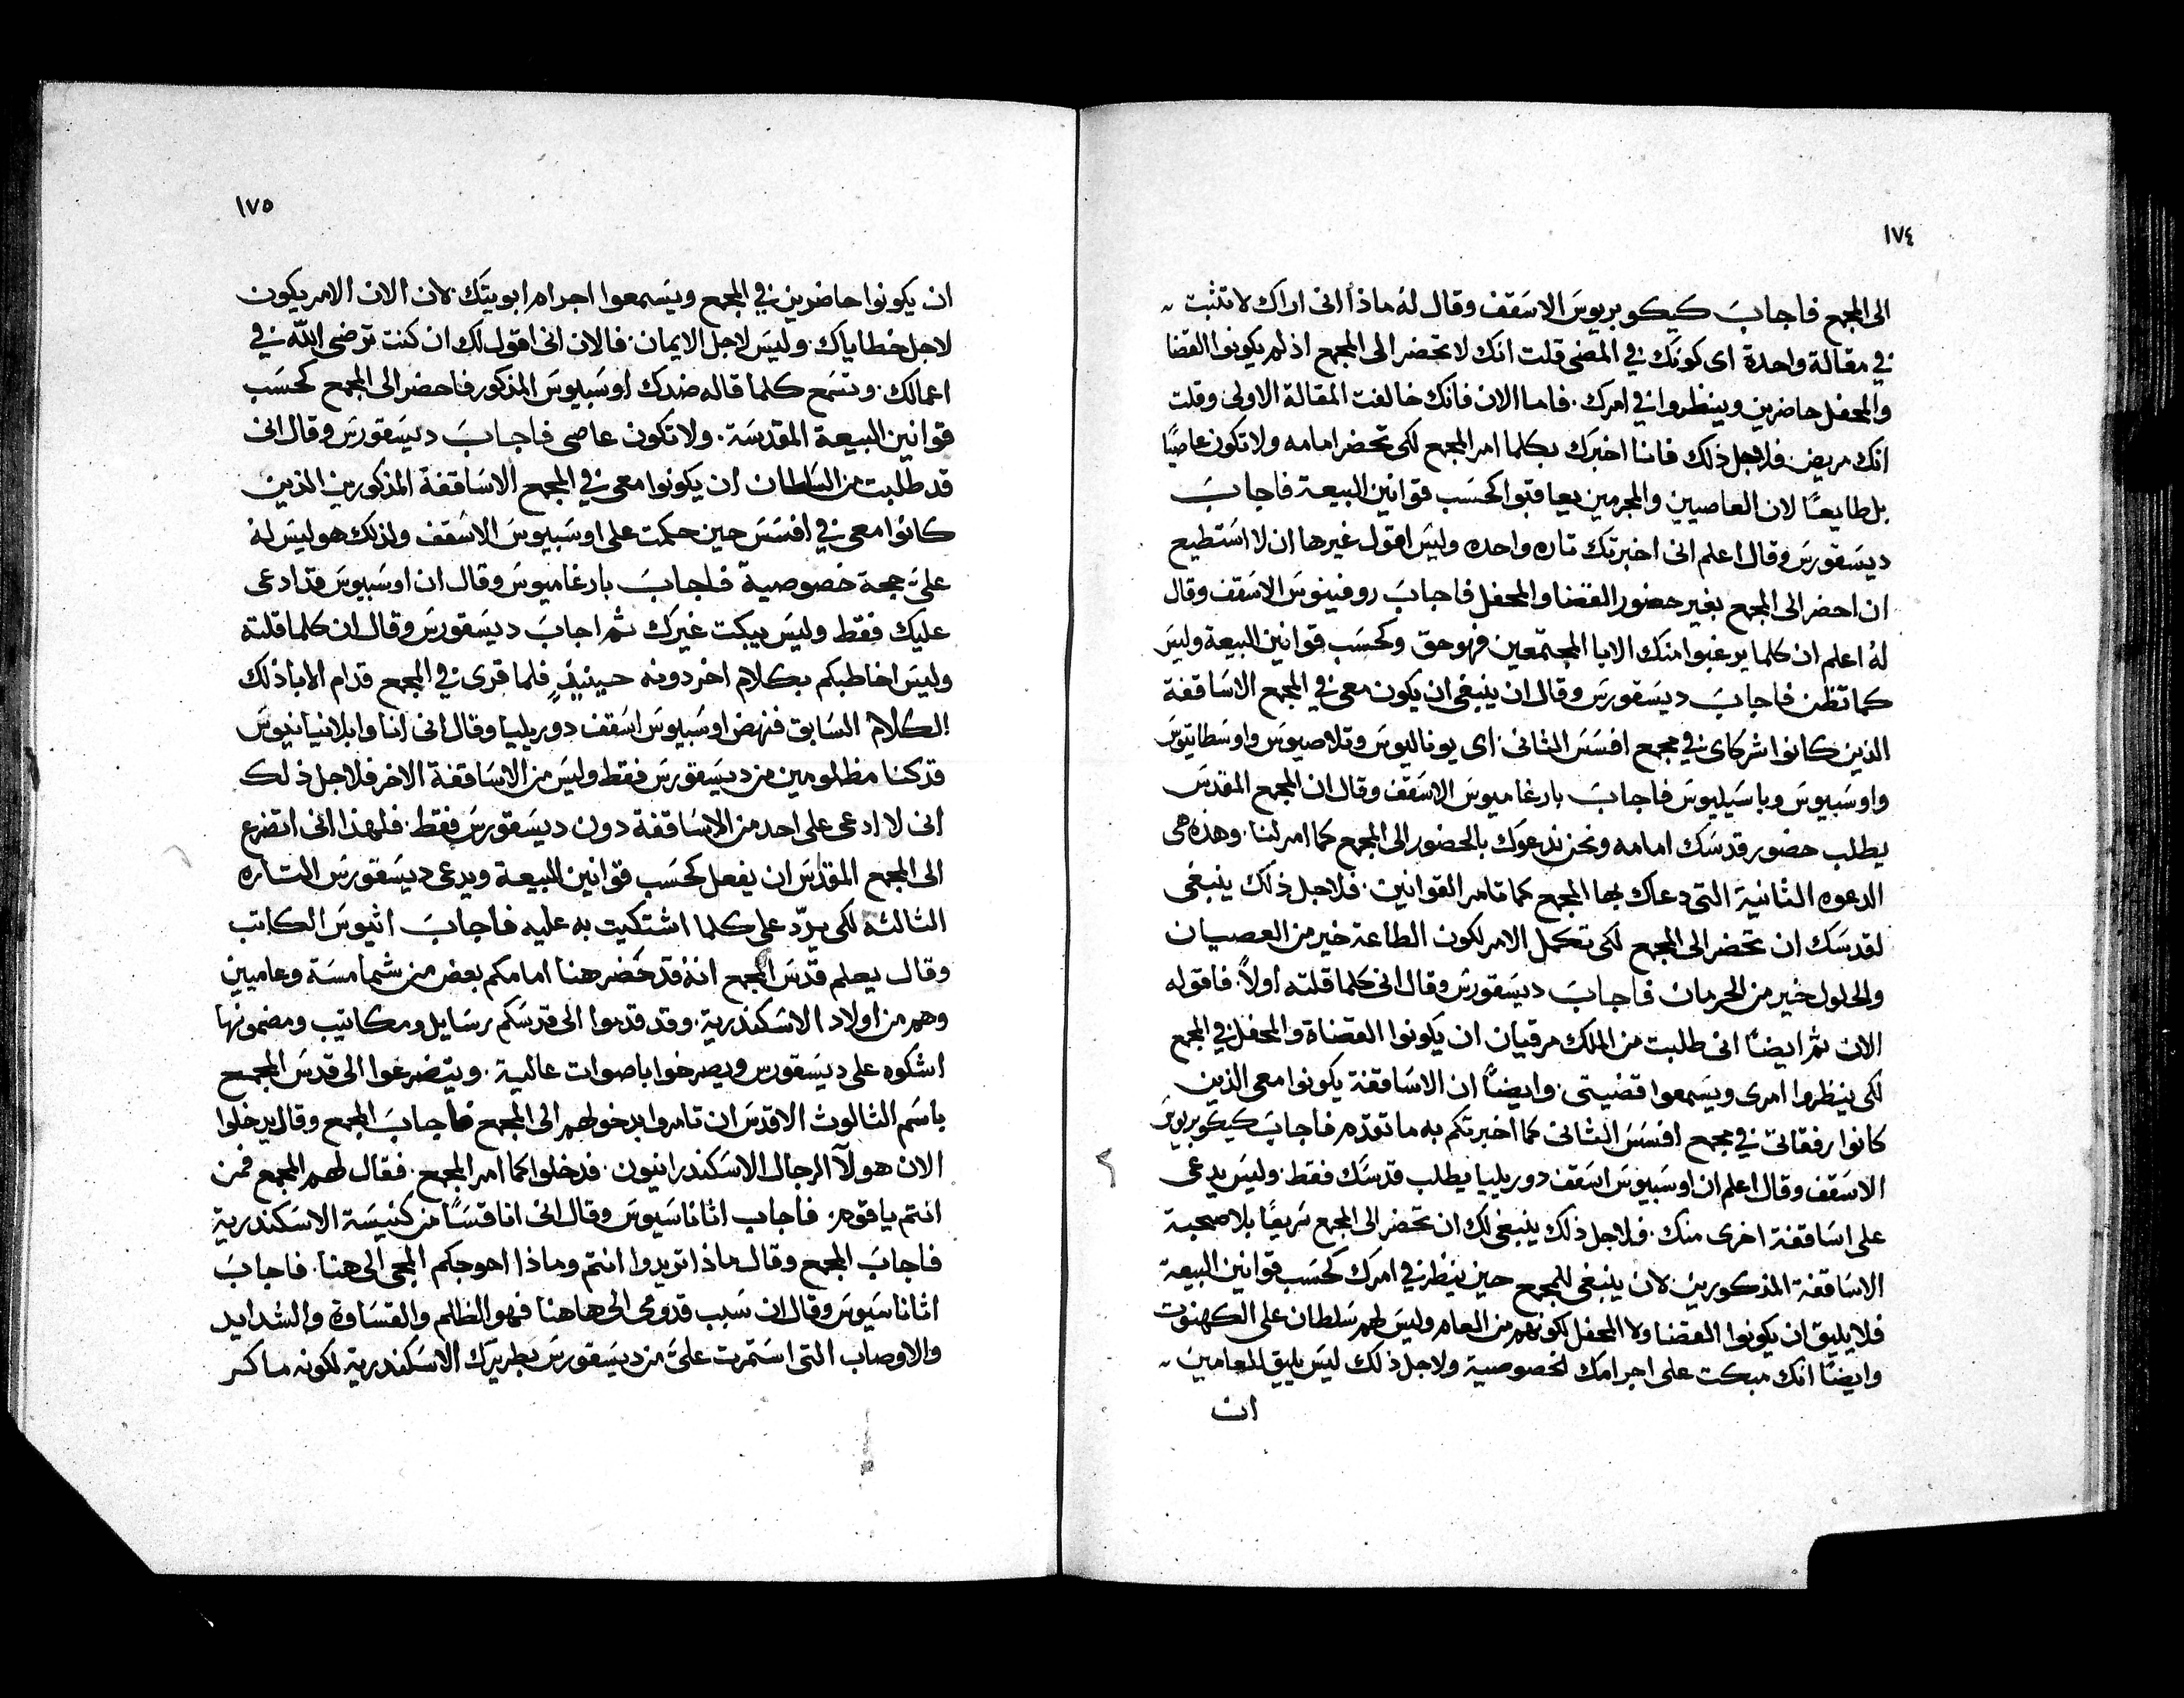 ١٧٤
الى المجمع فاجابَ كيكوبريوسَ الاسَقف وقال لهُ ماذا انى اراك لا تثبت
في مقالة واحدة اى كونك في المضى قلت انك لا تحضر الى المجمع اذ لم يكونوا القضا
والمحفل حاضرين وينظروا في امرك. فاما الان فانك خالفت المقالة الاولى وقلت
انك مريض فلاجل ذلك فانا اخبرك بكلما امر المجمع لكى تحضر امامه ولا تكون عاصيًا
بل طايعًا لان العاصيين والمجرمين يعاقبوا كحسَب قوانين البيعة فاجابَ
ديسَقورسَ وقال اعلم انى اخبرتك تاره واحده وليسَ اقول غيرها ان لا اسَتطيع
ان احضر الى المجمع بغير حضور القضا والمحفل فاجابَ روفينوسَ الاسَقف وقال
لهُ اعلم ان كلما يرغبوا منك الابا المجتمعين فهو حق وكحسَب قوانين البيعة وليسَ
كما تظن فاجابَ ديسَقورسَ وقال ان ينبغى ان يكون معى في المجمع الاسَاقفة
الذين كانوا شركاى في مجمع افسَسَ الثانى اى يوناليوسَ وتلاصيوسَ واوسَطاتيوسَ
واوسَبيوسَ وباسَيليوسَ فاجابَ بارغاميوسَ الاسَقف وقال ان المجمع المقدسَ
يطلب حضور قدسَك امامه ونحن ندعوك بالحضور الى المجمع كما امر لنا. وهذه هى
الدعوه الثانية التى دعاك بها المجمع كما تامر القوانين. فلاجل ذلك ينبغى
لقدسَك ان تحضر الى المجمع لكى تكمل الامر لكون الطاعة خير من العصيان
والحلول خير من الحرمان فاجابَ ديسَقورسَ وقال انى كلما قلته اولاً. فاقوله
الان ثم ايضاً انى طلبت من الملك مرقيان ان يكونوا القضاة والمحفل في المجمع
لكى ينظروا امرى ويسَمعوا قضيتى. وايضاً ان الاسَاقفة يكونوا معى الذين
كانوا رفقاتى في مجمع افسَسَ الثانى كما اخبرتكم به ما تقدم فاجابَ كيكوبريوسَ
الاسَقف وقال اعلم ان اوسَبيوسَ اسَقف دوريليا يطلب قدسَك فقط. وليسَ يدعى
على اسَاقفة اخرى منك. فلاجل ذلك ينبغى لك ان تحضر الى المجمع سَريعًا بلا صحبة
الاسَاقفة المذكورين لان ينبغى للمجمع حين ينظر في امرك كحسَب قوانين البيعة
فلا يليق ان يكونوا القضا ولا المحفل لكونهم من العام وليسَ لهم سَلطان على الكهنوت
وايضًا انك مبكت على اجرامك الخصوصية ولاجل ذلك ليسَ يليق للعامين
ان
١٧٥
ان يكونوا حاضرين في المجمع ويسَمعوا اجرام ابويتك. لان الان الامر يكون
لاجل خطاياك. وليسَ لاجل الايمان. فالان انى اقول لك ان كنت ترضى اللّه في
اعمالك. وتسَمع كلما قاله ضدك اوسَبيوسَ المذكور فاحضر الى المجمع كحسَب
قوانين البيعة المقدسَة. ولا تكون عاصى فاجابَ ديسَقورسَ وقال انى
قد طلبت من السَلطان ان يكونوا معى في المجمع الاسَاقفة المذكورين الذين
كانوا معى في افسَسَ حين حكمت على اوسَبيوسَ الاسَقف ولذلك هو ليسَ لهُ
علىَّ حجة خصوصية فاجابَ بارغاميوسَ وقال ان اوسَبيوسَ قد ادعى
عليك فقط وليسَ يبكت غيرك ثم اجابَ ديسَقورسَ وقال ان كلما قلته
وليسَ اخاطبكم بكلام اخر دونه حينيذٍ فلما قرى في المجمع قدام الابا ذلك
الكلام السَابق فنهض اوسَبيوسَ اسَقف دوريليا وقال انى انا وابلانيانيوسَ
قد كنا مظلومين من ديسَقورسَ فقط وليسَ من الاسَاقفة الاخر فلاجل ذلك
انى لا ادعى على احد من الاسَاقفة دون ديسَقورسَ فقط. فلهذا انى اتضرع
الى المجمع المقدسَ ان يفعل كحسَب قوانين البيعة ويدعى ديسَقورسَ التاره
الثالثه لكى يردّ على كلما اشتكيت به عليه فاجابَ اتيوسَ الكاتب
وقال يعلم قدسَ المجمع انهُ قد حضر هنا امامكم بعض من شمامسَة وعاميين
وهم من اولاد الاسَكندرية. وقد قدموا الى قدسَكم رسَايل ومكاتيب ومضمونها
اشكوه على ديسَقورس ويصرخوا باصوات عالية. ويتضرعوا الى قدسَ المجمع
باسَم الثالوث الاقدسَ ان تامروا بدخولهم الى المجمع فاجابَ المجمع وقال يدخلوا
الان هولآ الرجال الاسَكندرانيون. فدخلوا كما امر المجمع. فقال لهم المجمع فمن
انتم يا قوم. فاجاب اثاناسَيوسَ وقال انى انا قسَاً من كنيسَة الاسَكندرية
فاجابَ المجمع وقال ماذا تريدوا انتم وماذا احوجكم المجى الى هنا. فاجابَ
اثاناسَيوسَ وقال ان سَبب قدومى الى هاهنا فهو الظلم والقسَاوة والشدايد
والاوصاب التى اسَتمرت علىَّ من ديسَقورسَ بطريرك الاسَكندرية لكونه ماكر